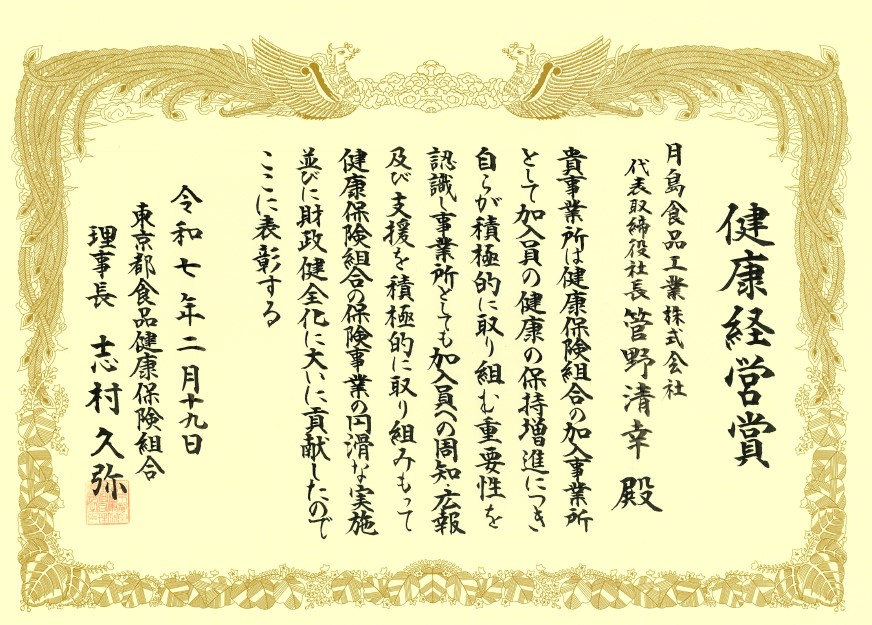 健康経営賞
月島食品工業株式会社
代表取締役社長 管野清幸 殿
貴事業所は健康保険組合の加入事業所
として加入員の健康の保持増進につき
自らが積極的に取り組む重要性を
認識し事業所としても加入員への周知・広報
及び支援を積極的に取り組みもって
健康保険組合の保険事業の円滑な実施
並びに財政健全化に大いに貢献したので
ここに表彰する
令和七年二月十九日
東京都食品健康保険組合
理事長 志村久弥